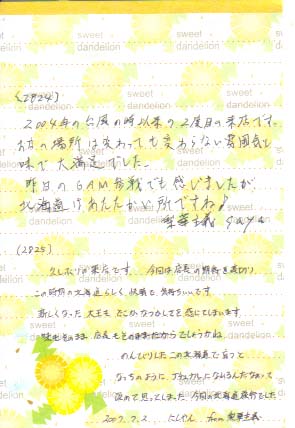 sweet dandelion
(2824)
2004年の台風の時以来の2度目の来店です。
お店の場所は変わっても変わらない雰囲気と
味で大満足でした。
昨日のGAM参戦でも感じましたが
北海道はあたたかい所ですね♪
saya
(2825)
久しぶりの来店です。今回は店長の期待を裏切り
この時期の北海道らしく、快晴で気持ちいいです
新しくなった大王もどこかなつかしさを感じてしまいます
味もそのまま、店長もそのままだからでしょうかね。
のんびりしたこの北海道で育つと
なっちのように
改めて思ってしまった今回の北海道遠征でした
2007.7.2 にしやん from